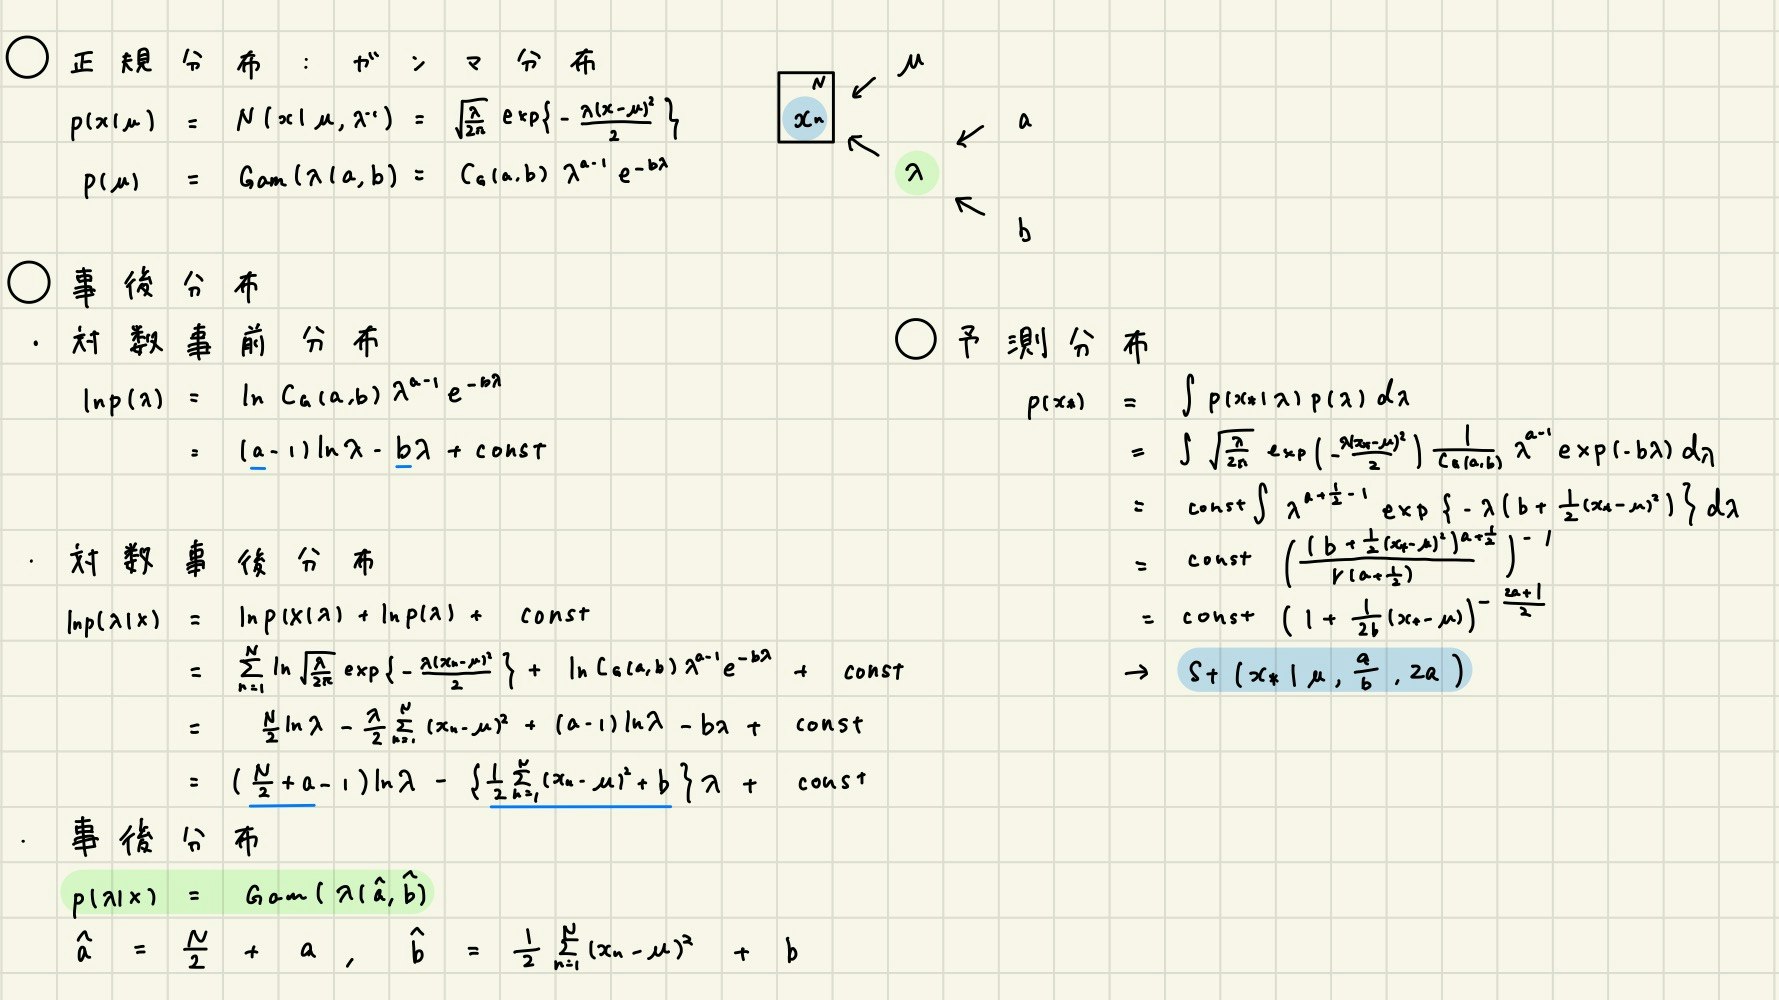 ○ 正規分布：ガンマ分布
p(x|μ) = N(x|μ, λ⁻¹) = √(λ/2π) exp{-λ(x-μ)²/2}
p(μ) = Gam(λ|a,b) = C_G(a,b) λ^{a-1} e^{-bλ}
N
xn
μ
λ
a
b
○ 事後分布
・対数事前分布
ln p(λ) = ln C_G(a,b) λ^{a-1} e^{-bλ}
= (a-1) ln λ - bλ + const
・対数事後分布
ln p(λ|X) = ln p(X|λ) + ln p(λ) + const
= Σ_{n=1}^{N} ln √(λ/2π) exp{-λ(xn-μ)²/2} + ln C_G(a,b) λ^{a-1} e^{-bλ} + const
= N/2 ln λ - λ/2 Σ_{n=1}^{N} (xn-μ)² + (a-1) ln λ - bλ + const
= (N/2 + a - 1) ln λ - {1/2 Σ_{n=1}^{N} (xn-μ)² + b} λ + const
・事後分布
p(λ|X) = Gam(λ|â, b̂)
â = N/2 + a , b̂ = 1/2 Σ_{n=1}^{N} (xn-μ)² + b
○ 予測分布
p(x*) = ∫ p(x*|λ) p(λ) dλ
= ∫ √(λ/2π) exp(-λ(x*-μ)²/2) 1/C_G(a,b) λ^{a-1} exp(-bλ) dλ
= const ∫ λ^{a+1/2-1} exp{-λ(b + 1/2(x*-μ)²)} dλ
= const ((b + 1/2(x*-μ)²)^{a+1/2} / Γ(a+1/2))^{-1}
= const (1 + 1/2b (x*-μ))^{-(2a+1)/2}
→ St(x*|μ, a/b, 2a)